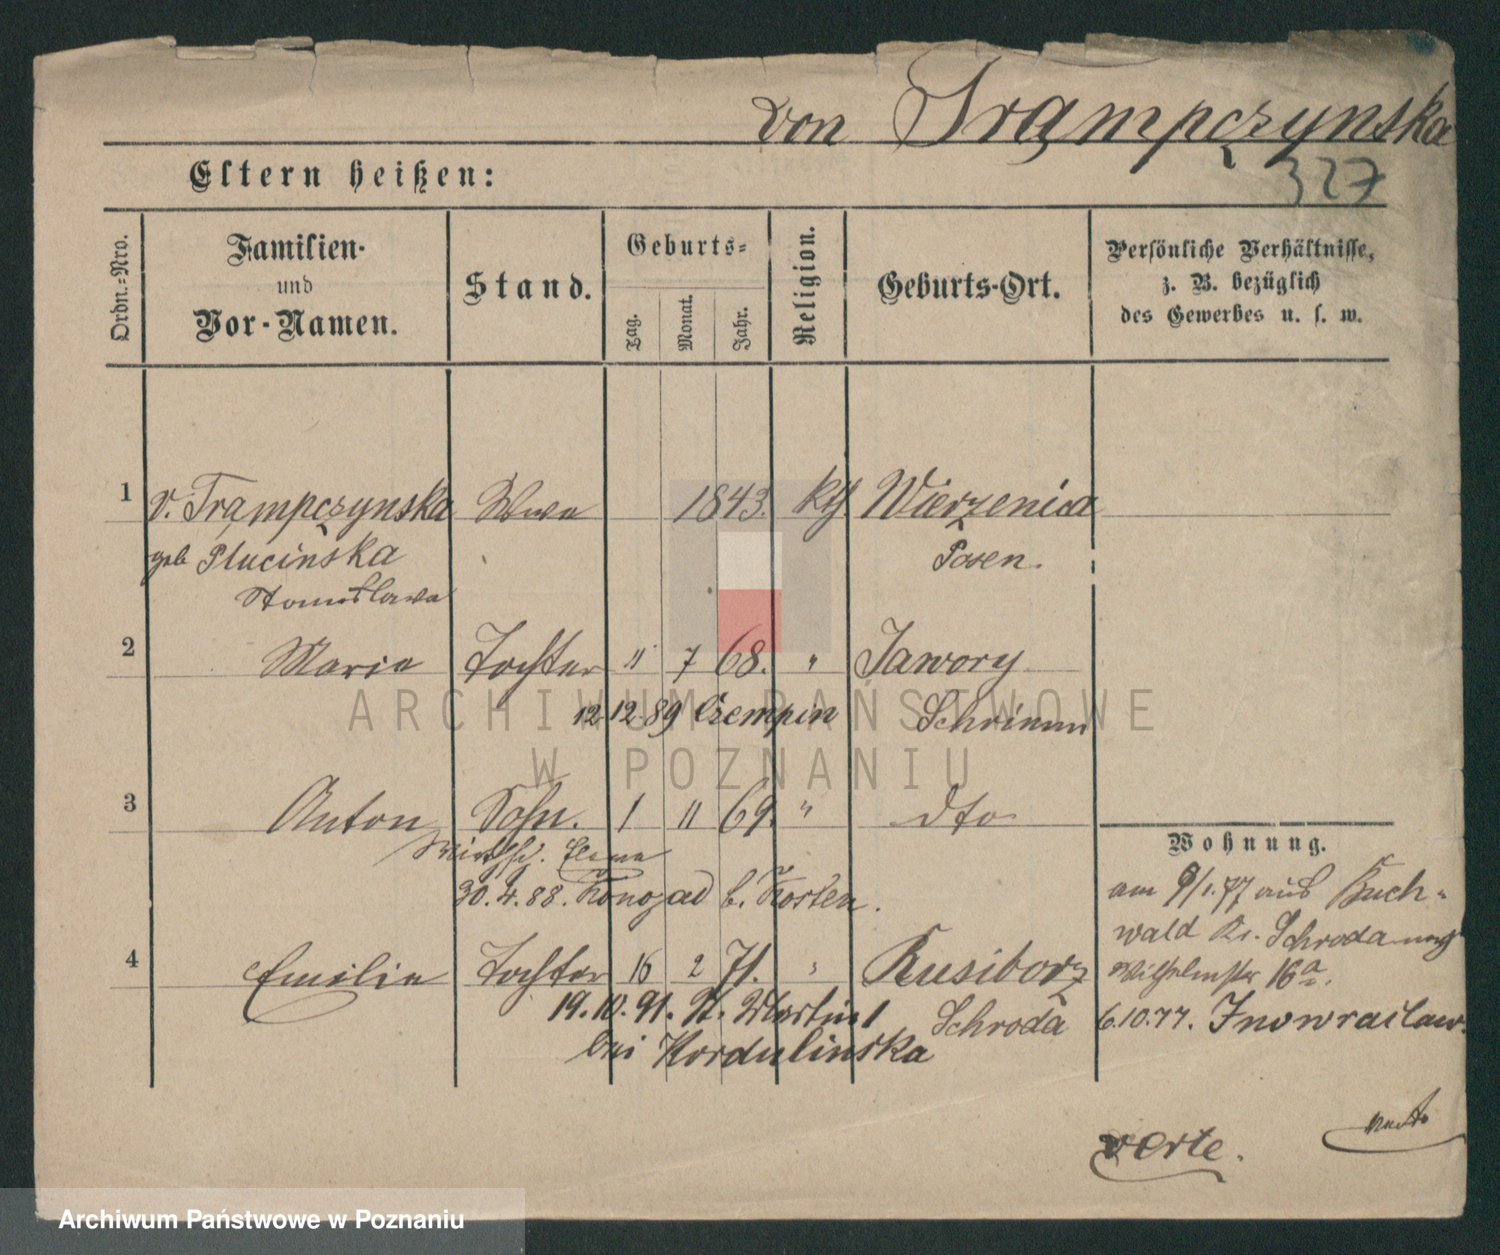 von Trąmpczynska
327
Eltern heißen:
Ordn.=Nro.
Familien-
und
Vor-Namen.
Stand.
Geburts=
Tag.
Monat.
Jahr.
Religion.
Geburts-Ort.
Persönliche Verhältnisse,
z. B. bezüglich
des Gewerbes u. s. w.
1 v. Trąmpczynska Wwe 1843. kth Wierzenica
geb Plucińska Posen.
Stanislawa
2 Marie Tochter 11 7 68. " Jawory
12.12.89 Czempin Schrimm
3 Anton Sohn. 1 11 69. " dto
Wirthsch. Eleve
30.4.88. Konojad b. Kosten.
4 Emilie Tochter 16 2 71. " Rusiborz
19.10.91. St. Martin 1 Schroda
bei Kordulinska
Wohnung.
am 9/1.77 aus Buch=
wald Kr. Schroda
Wilhelmstr 16a.
6.10.77. Inowraclaw.
verte.
ARCHIWUM PAŃSTWOWE
W POZNANIU
Archiwum Państwowe w Poznaniu